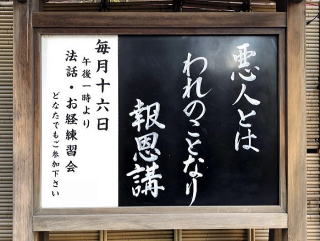 悪人とは
われのことなり
報恩講
毎月十六日
午後一時より
法話・お経練習会
どなたでもご参加下さい